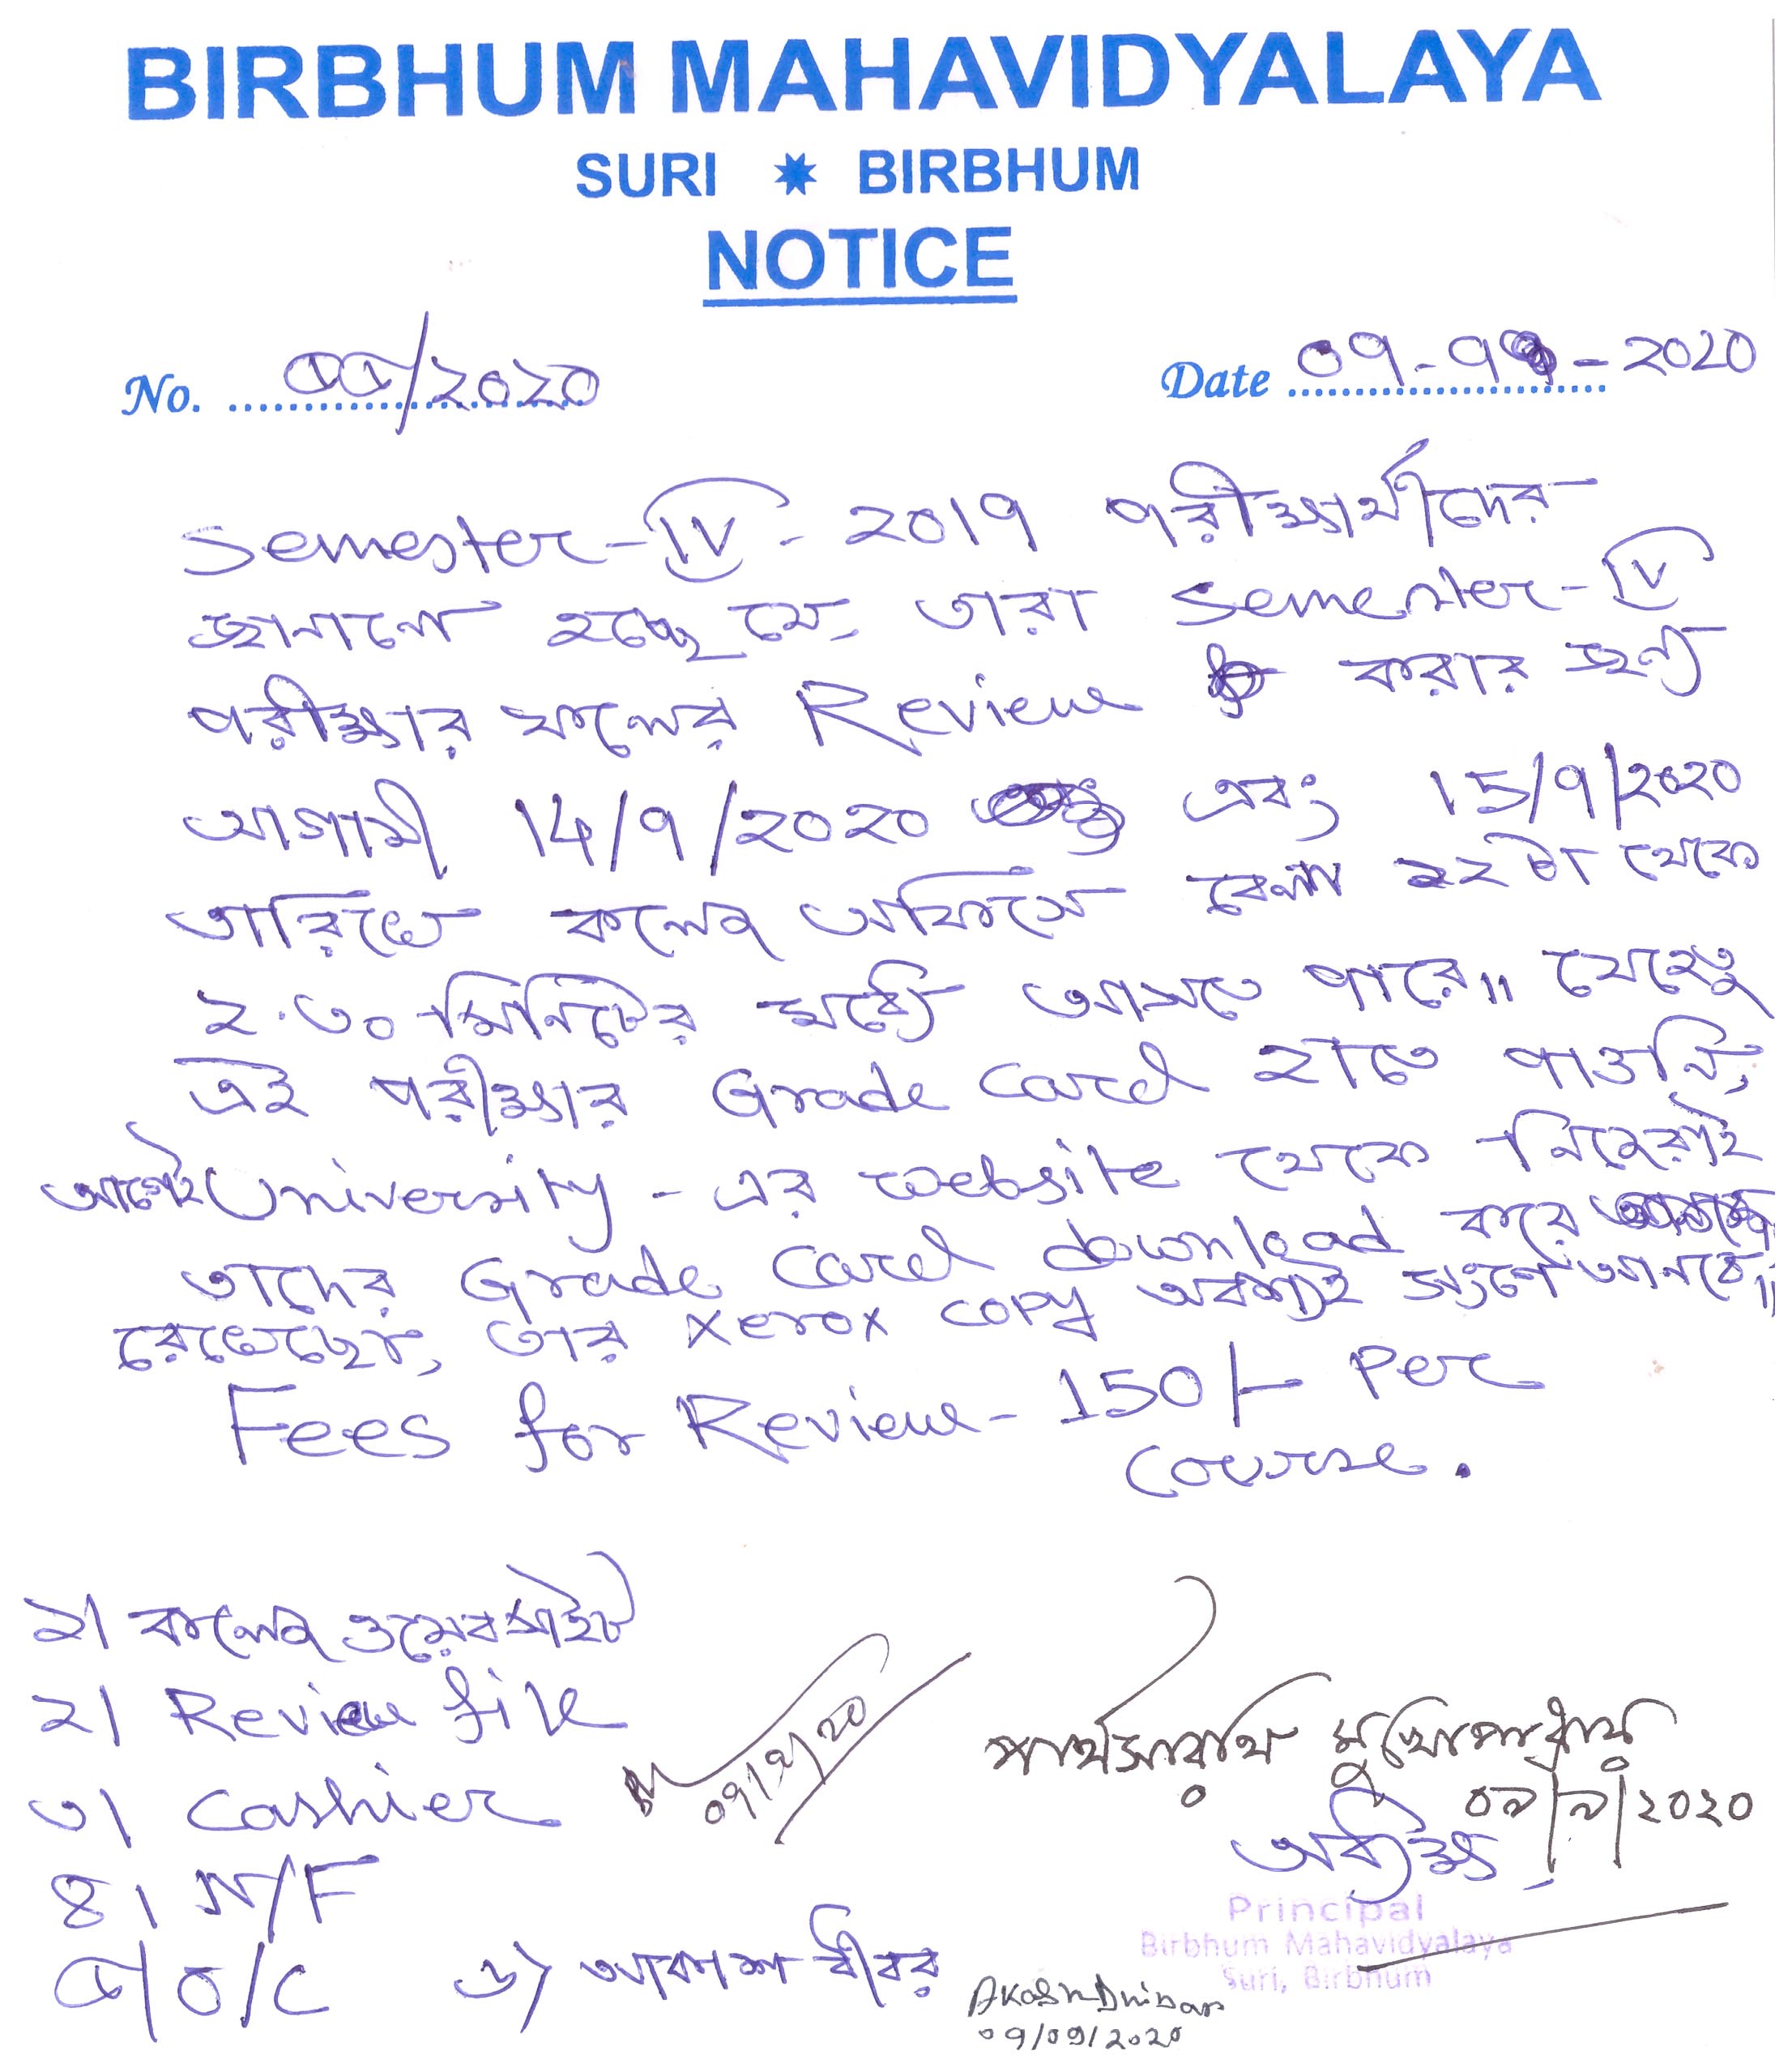 BIRBHUM MAHAVIDYALAYA
SURI ✷ BIRBHUM
NOTICE
No. ৫৫/২০২০
Date 09-9-2020
Semester-IV - 2019 পরীক্ষার্থীদের
জানানো হচ্ছে যে, তারা Semester-IV
পরীক্ষার ফলের Review করার জন্য
আগামী 14/9/2020 এবং 15/9/2020
তারিখে কলেজ অফিসে বেলা ১২টা থেকে
২.৩০ মিনিটের মধ্যে আসতে পারে॥ যেহেতু
এই পরীক্ষার Grade Card হাতে পাওনি,
আগেই University - এর website থেকে নিজেরাই
তাদের Grade Card download করে
রেখেছো, তার Xerox copy অবশ্যই সংগে আনবে॥
Fees for Review - 150/- Per
course.
১। কলেজ ওয়েবসাইট
২। Review file
৩। Cashier
৪। N/F
৫। O/C ৬) আকাশ ধীবর
09/9/20
পার্থসারথি মুখোপাধ্যায়
০৯/৯/২০২০
অধ্যক্ষ
Principal
Birbhum Mahavidyalaya
Suri, Birbhum
Akash Dhibar
09/09/2020